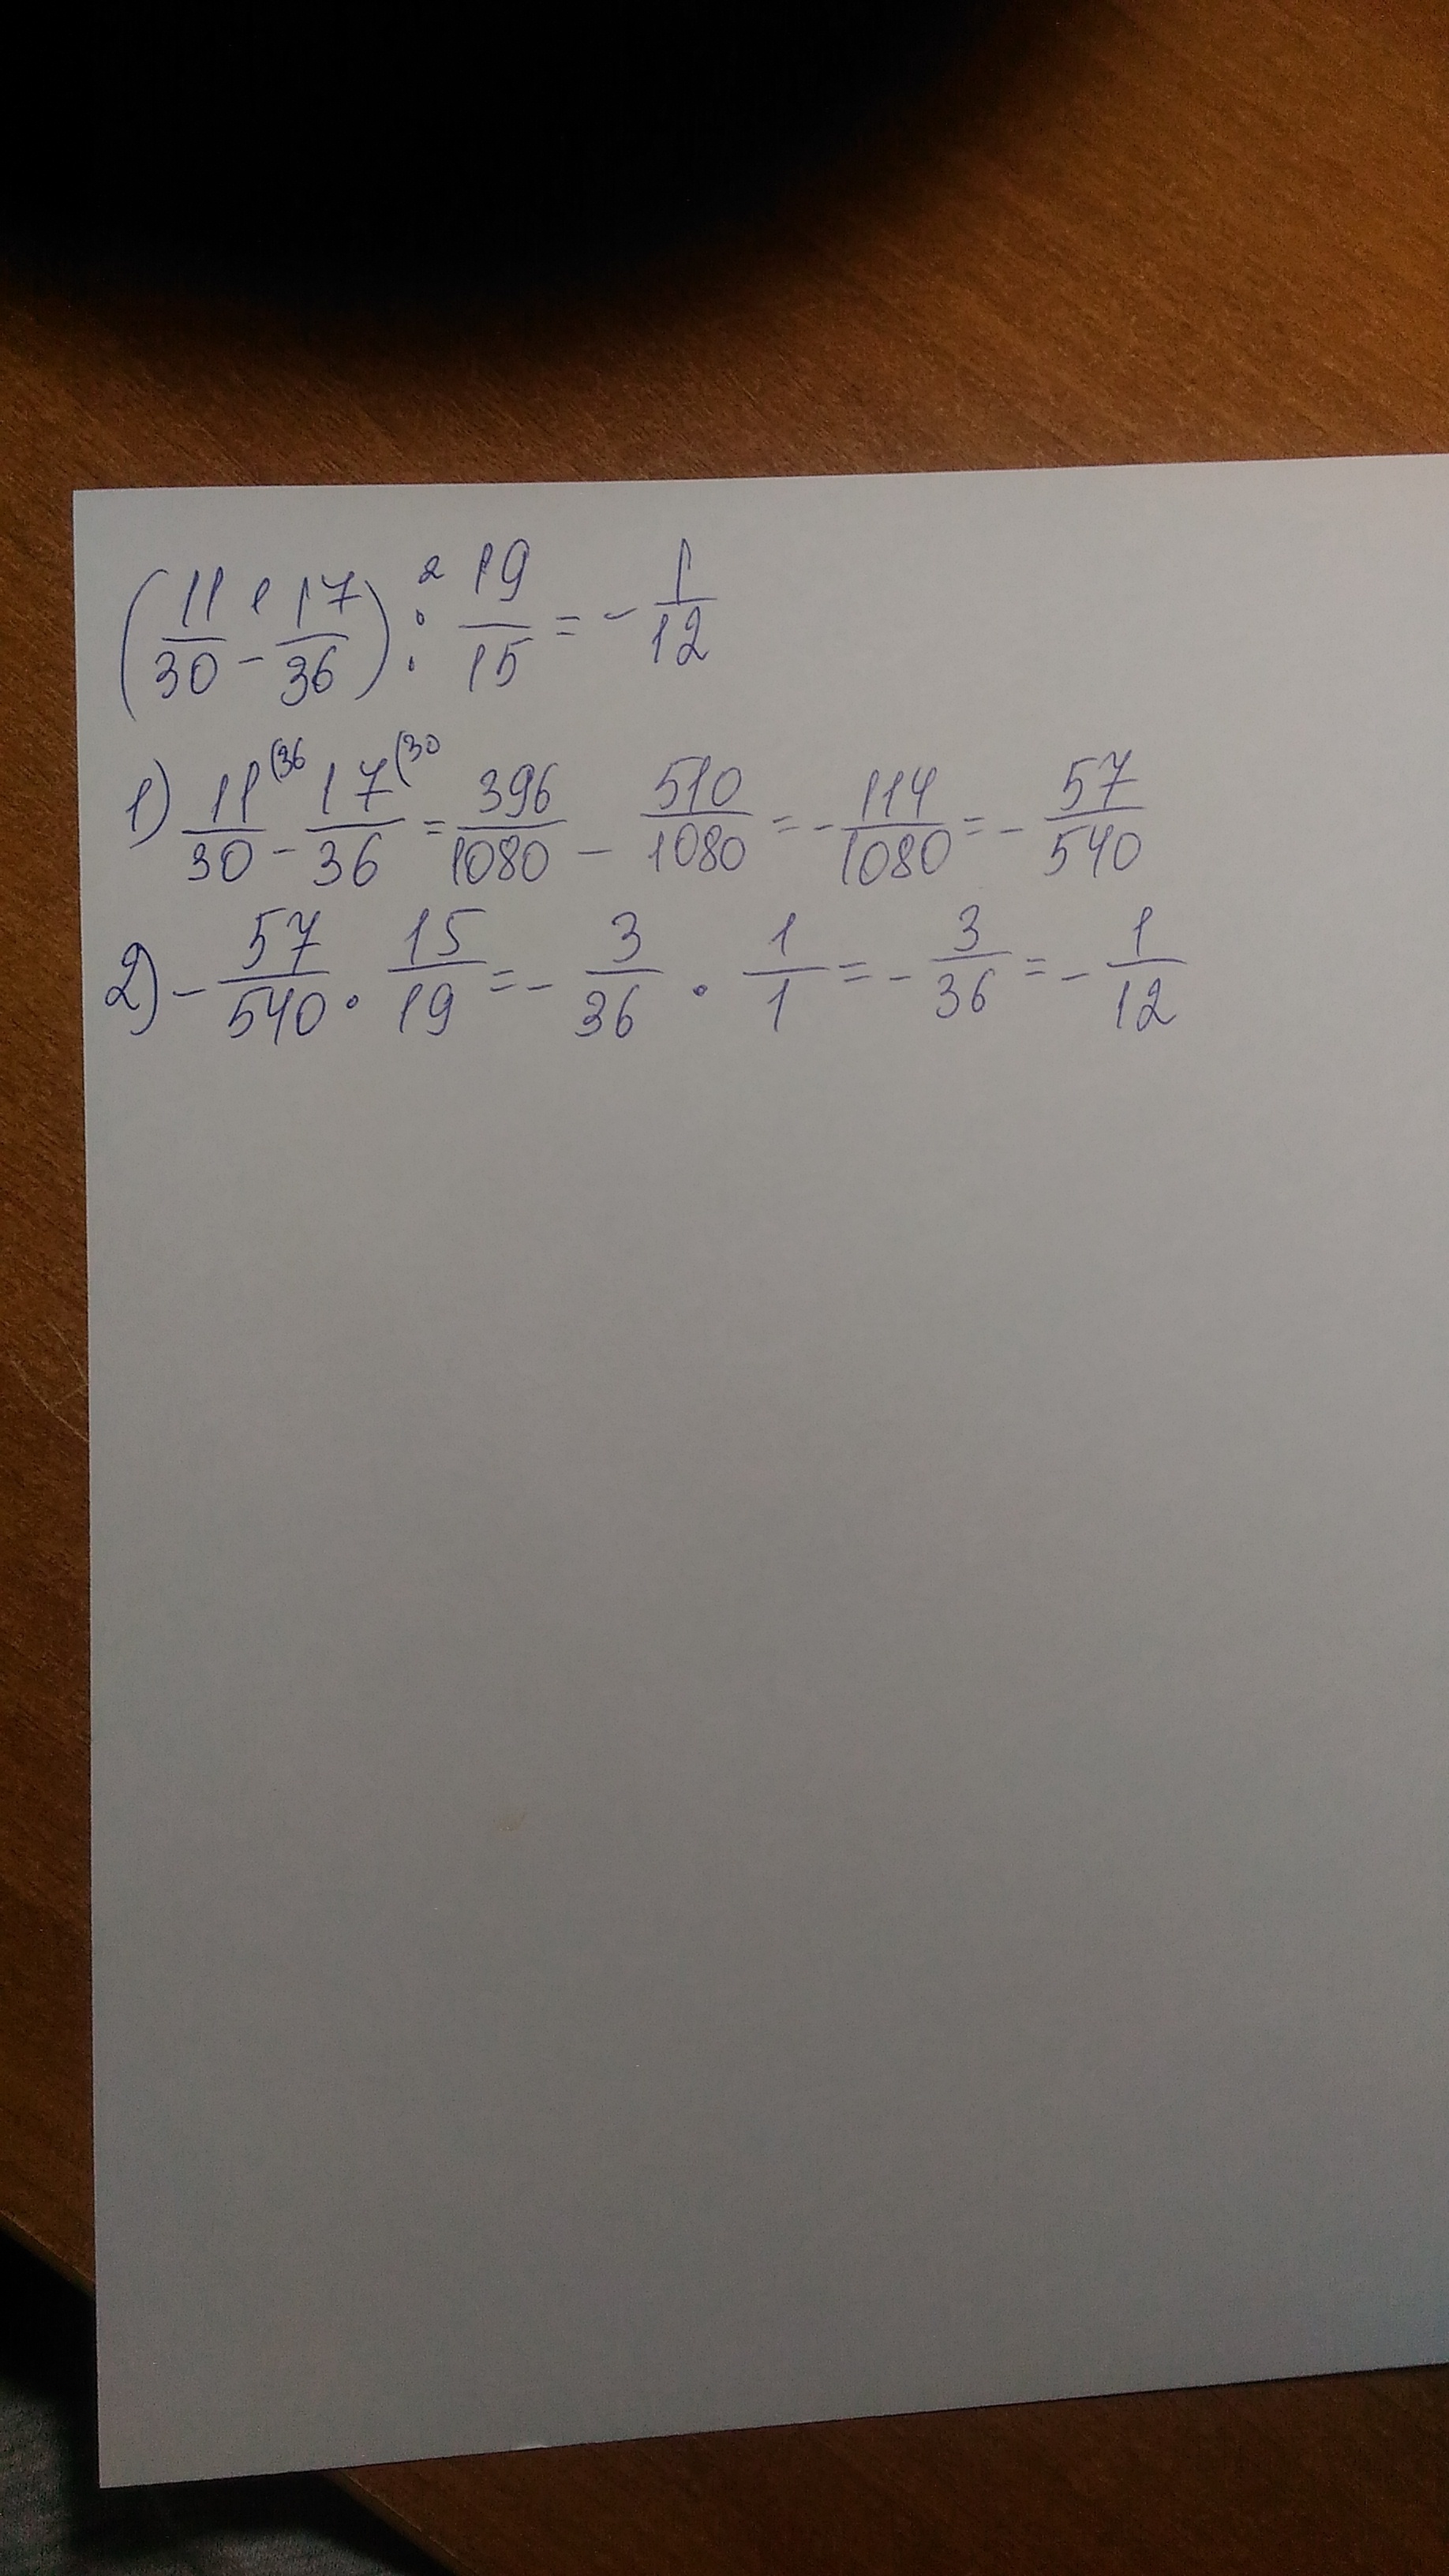 (11/30 - 17/36) : 19/15 = - 1/12
1) 11/30 (36 - 17/36 (30 = 396/1080 - 510/1080 = - 114/1080 = - 57/540
2) - 57/540 · 15/19 = - 3/36 · 1/1 = - 3/36 = - 1/12